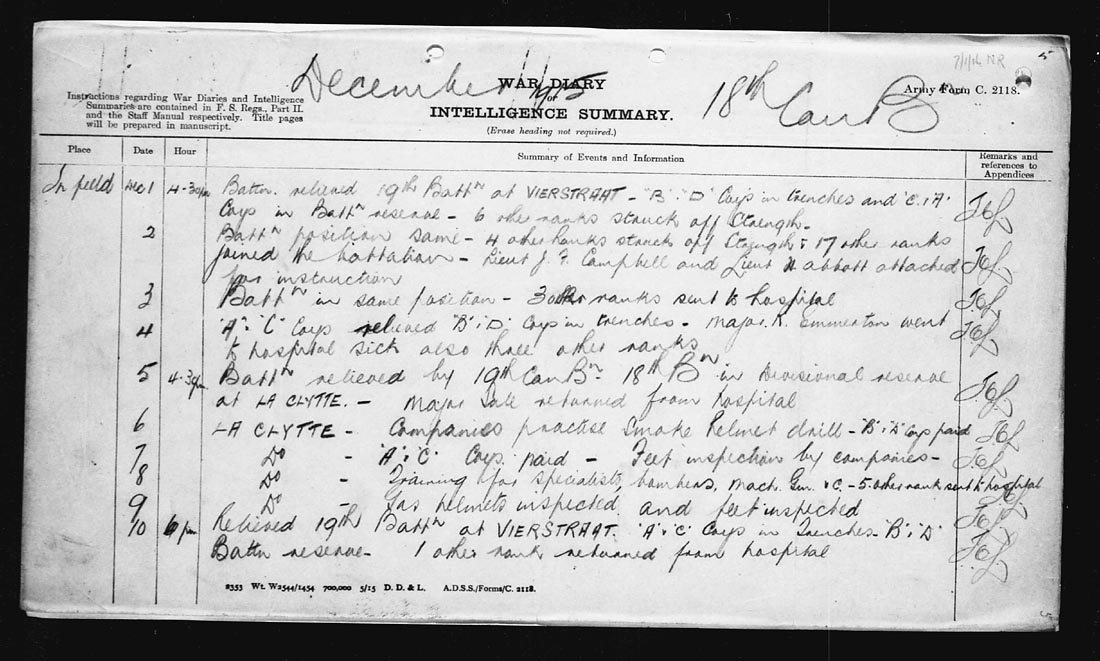 7/1/16 NR
5
December 1915
WAR DIARY
or
INTELLIGENCE SUMMARY.
(Erase heading not required.)
18th Can B
Army Form C. 2118.
Instructions regarding War Diaries and Intelligence
Summaries are contained in F. S. Regs., Part II.
and the Staff Manual respectively. Title pages
will be prepared in manuscript.
Place Date Hour Summary of Events and Information Remarks and
references to
Appendices
In field Dec 1 4-30pm Battn. relieved 19th Battn at VIERSTRAAT - "B" "D" Coys in trenches and "C" "A"
Coys in Battn reserve - 6 other ranks struck off Strength -
2 Battn position same - 4 other ranks struck off Strength & 17 other ranks
joined the battalion - Lieut J. F. Campbell and Lieut H abbott attached
for instruction
3 Battn in same position - 3 other ranks sent to hospital
4 "A" "C" Coys relieved "B" "D" Coys in trenches - Major. K. Emmerton went
to hospital sick also three other ranks
5 4-30pm Battn relieved by 19th Can Bn. 18th Bn in Divisional reserve
at LA CLYTTE. - Major returned from hospital
6 LA CLYTTE - Companies practise Smoke helmet drill - "B" "D" Coys paid
7 Do - "A" "C" Coys. paid - Feet inspection by companies -
8 Do - Training for specialists, bombers, Mach. Gun. &c. - 5 other rank sent to hospital
9 Do - Gas helmets inspected and feet inspected
10 6 pm Relieved 19th Battn at VIERSTRAAT. "A" "C" Coys in Trenches - "B" "D"
Battn reserve - 1 other rank returned from hospital
2353 Wt. W2544/1454 700,000 5/15 D. D. & L. A.D.S.S./Forms/C. 2118.